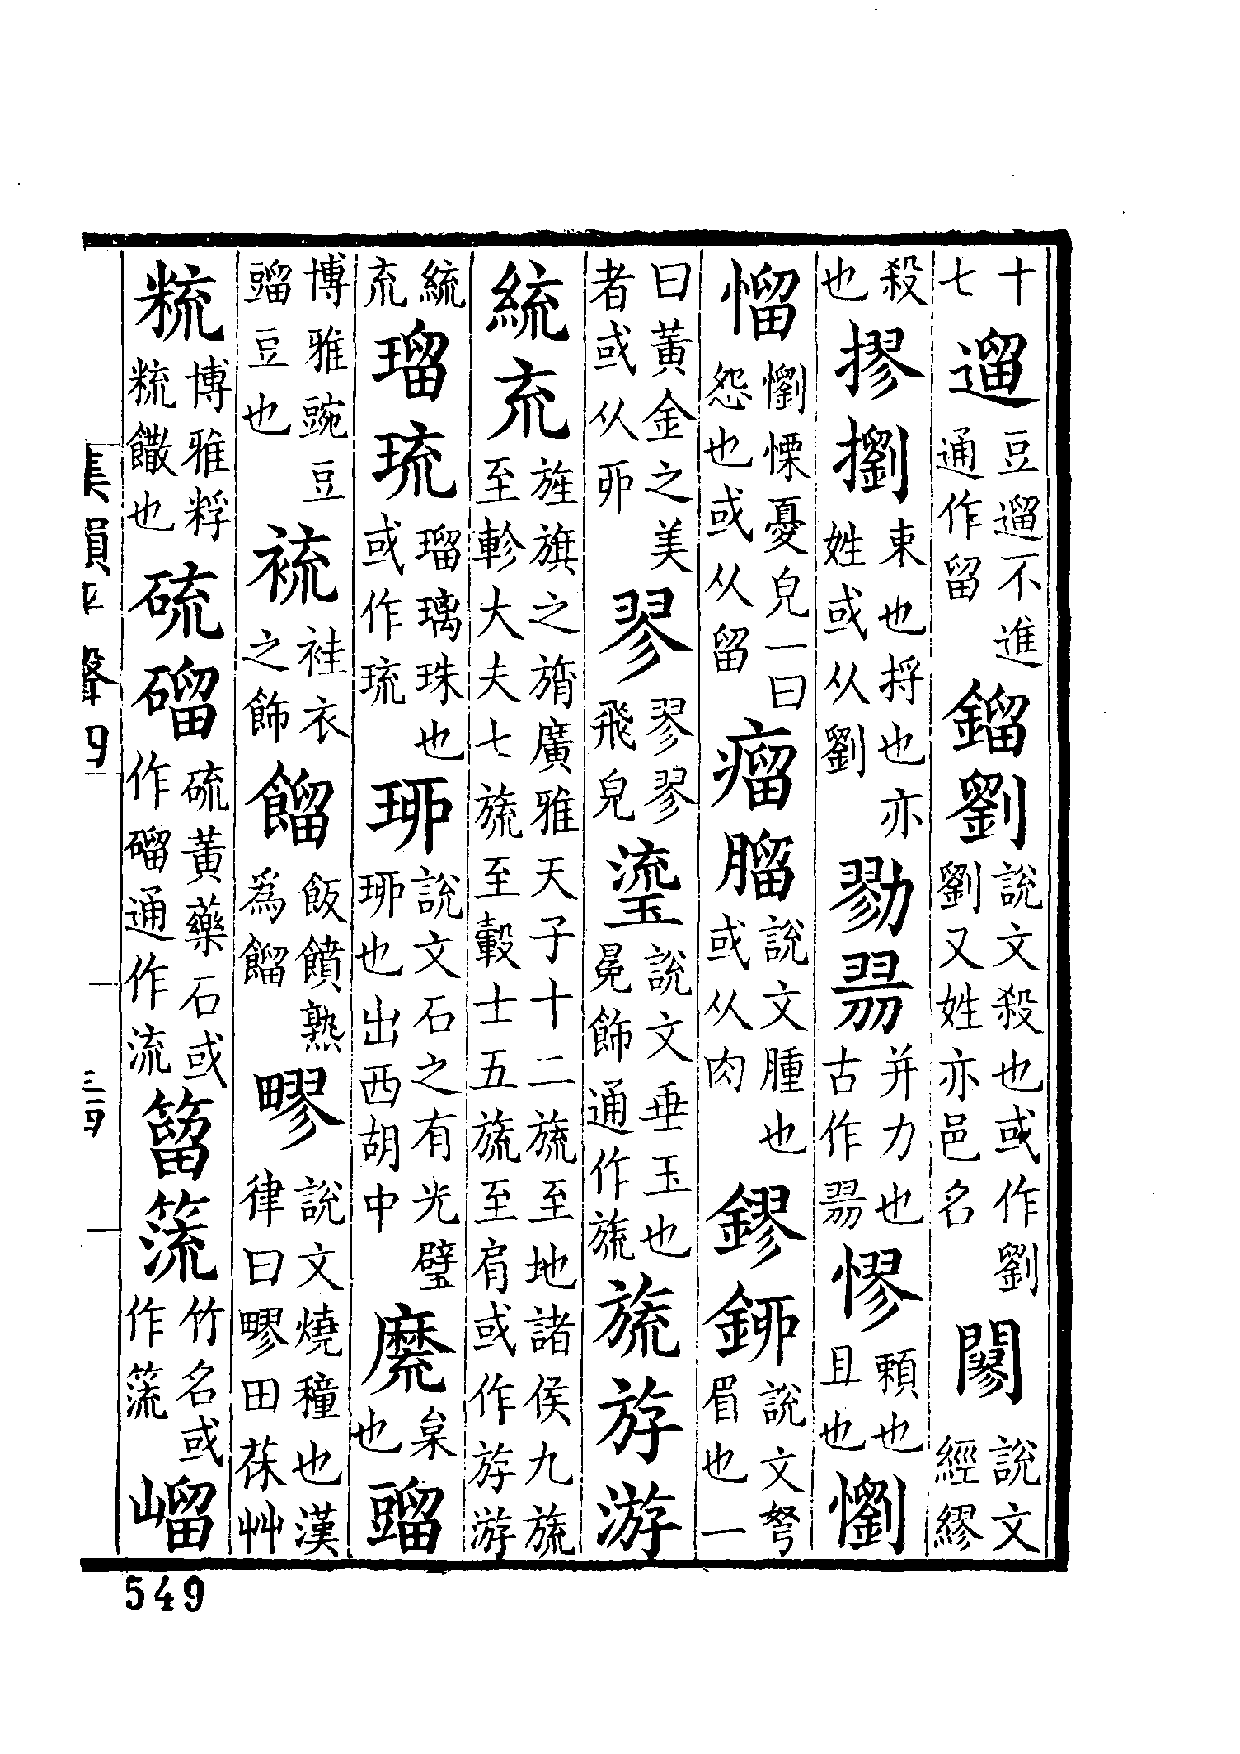 十七遛豆遛不進通作留鎦劉說文殺也或作劉劉又姓亦邑名䦼說文經繆
殺也摎束也捋也亦姓或从劉勠并力也古作憀賴也且也懰
懰慄憂皃一曰怨也或从留瘤說文腫也或从肉鏐說文弩眉也一
曰黃金之美者或从丣翏翏翏飛皃瑬說文垂玉也冕飾通作旒旒斿游
㐬旌旗之旓廣雅天子十二旒至地諸侯九旒至軫大夫七旒至轂士五旒至肩或作斿游
㐬瑠琉瑠璃珠也或作琉珋說文石之有光璧珋也出西胡中㮃也
博雅豌豆豆也裗袿衣之飾餾飯饙熟爲餾疁說文燒穜也漢律曰疁田茠艸
博雅粰也硫磂硫黃藥石或作磂通作流竹名或作嵧
集韻平聲四
三四
549